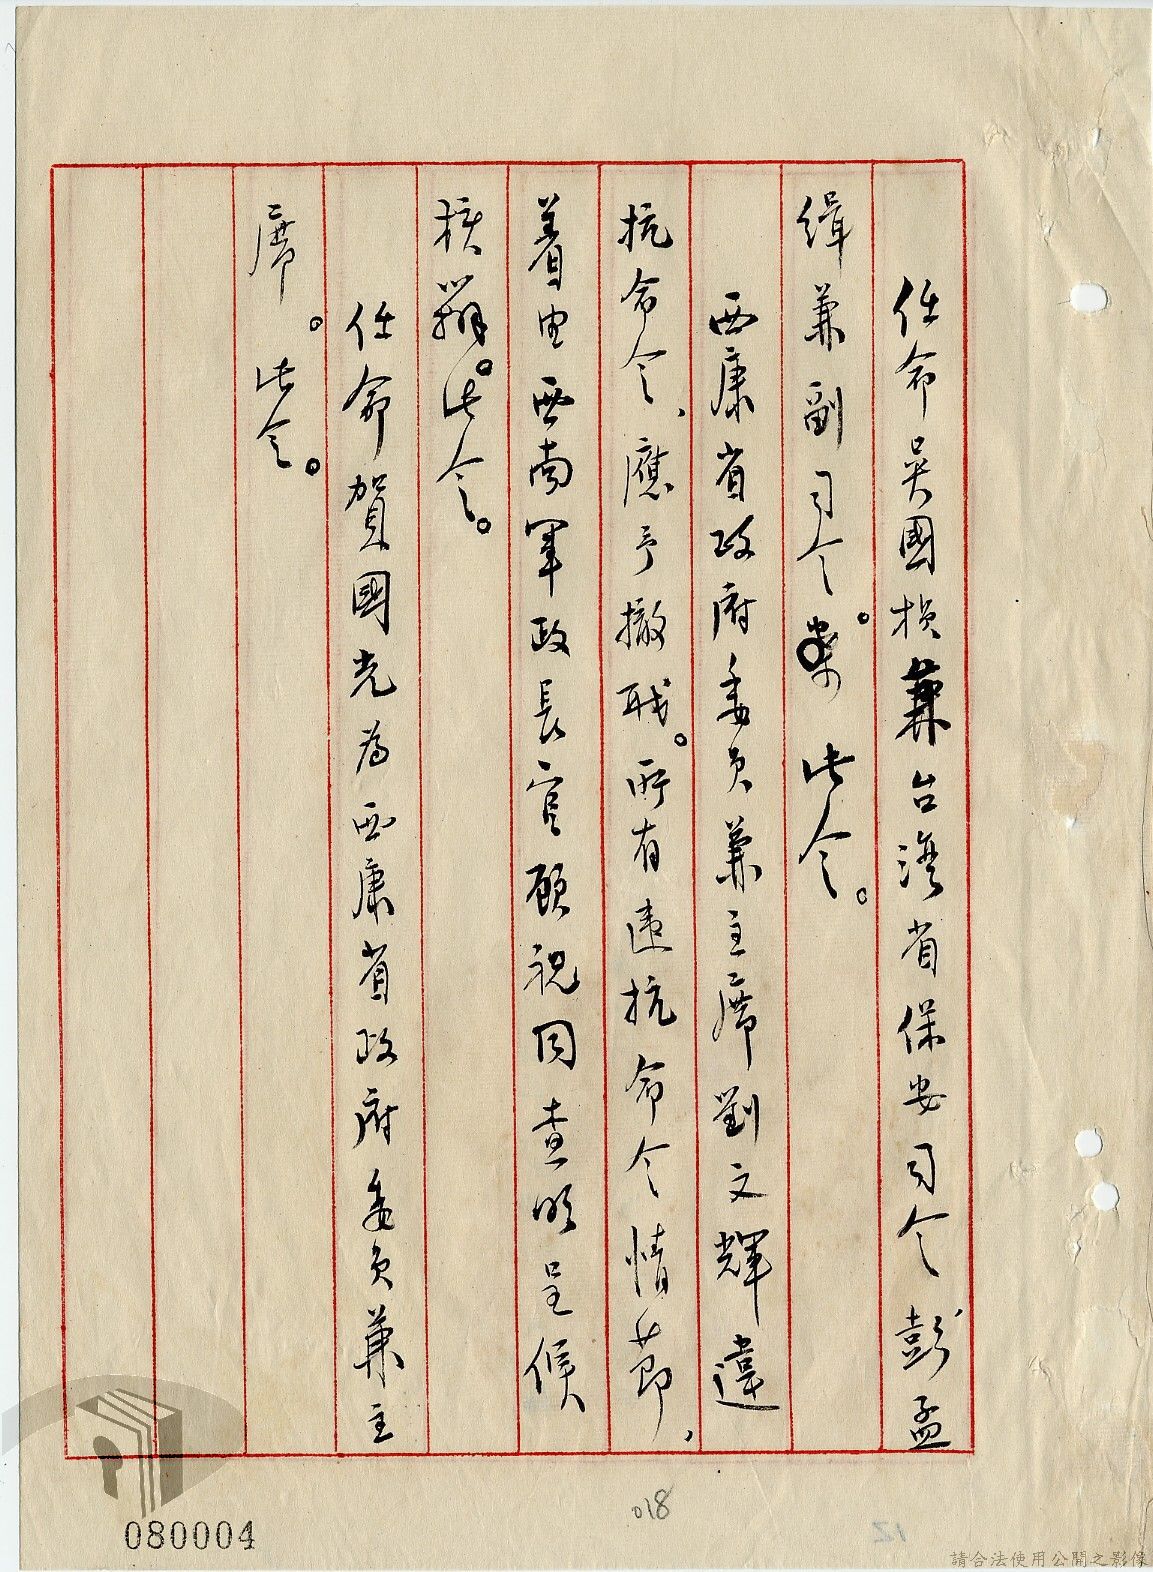 任命吳國楨兼台灣省保安司令彭孟
緝兼副司令。此令。
西康省政府委員兼主席劉文輝違
抗命令、應予撤職。所有違抗命令情節、
着由西南軍政長官顧祝同查明呈候
核辦。此令。
任命賀國光為西康省政府委員兼主
席。此令。
018
12
080004
請合法使用公開之影像